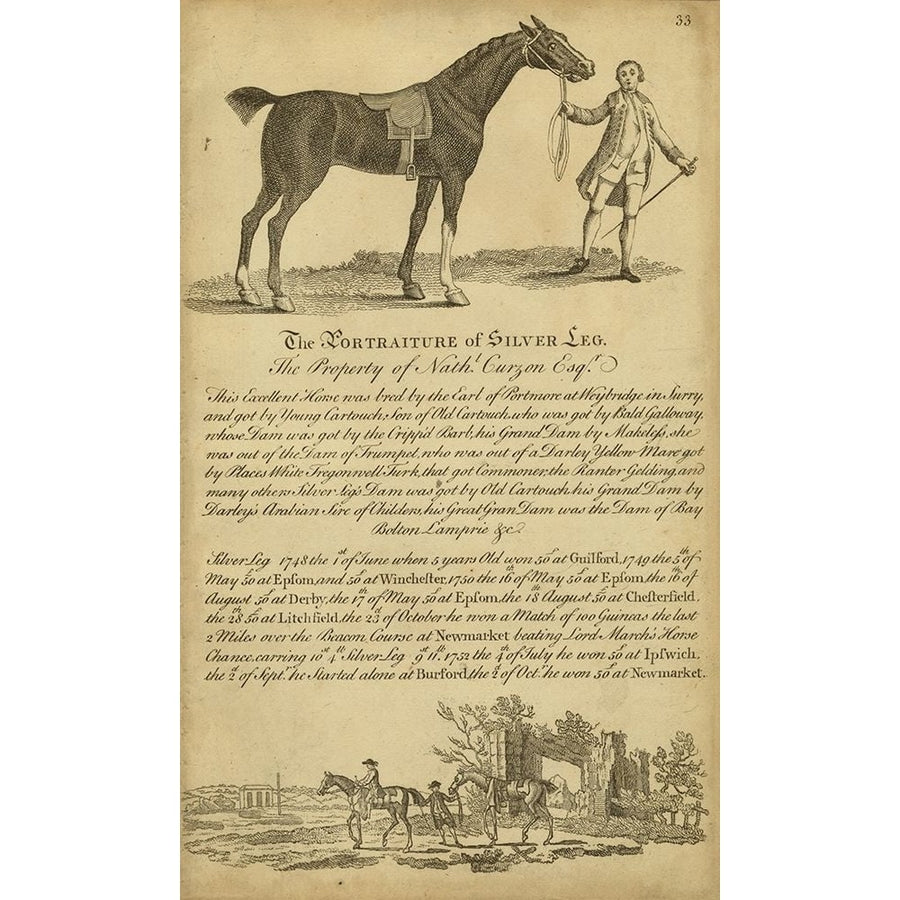 33
The PORTRAITURE of SILVER LEG.
The Property of Nath.l Curzon Esq.r
This Excellent Horse was bred by the Earl of Portmore at Weybridge in Surry,
and got by Young Cartouch, Son of Old Cartouch, who was got by Bald Galloway,
whose Dam was got by the Cripp'd Barb, his Grand Dam by Makeleſs, she
was out of the Dam of Trumpet, who was out of a Darley Yellow Mare got
by Places White Tregonwell Turk, that got Commoner, the Ranter Gelding, and
many others Silver leg's Dam was got by Old Cartouch, his Grand Dam by
Darley's Arabian Sire of Childers, his Great Gran Dam was the Dam of Bay
Bolton Lamprie &c.
Silver Leg 1748 the 1st of June when 5 years Old won 50£ at Guilford, 1749 the 5th of
May 50 at Epſom, and 50£ at Wincheſter, 1750 the 16th of May 50£ at Epſom, the 16th of
August 50£ at Derby, the 17th of May 50£ at Epſom, the 18th August 50£ at Cheſterfield,
the 28th 50£ at Litchfield, the 23d of October he won a Match of 100 Guineas the last
2 Miles over the Beacon Course at Newmarket beating Lord March's Horse
Chance, carring 10st 4lb Silver Leg 9st 11lb. 1752 the 4th of July he won 50£ at Ipſwich,
the 2d of Septr. he Started alone at Burford, the 2d of Octr. he won 50£ at Newmarket.